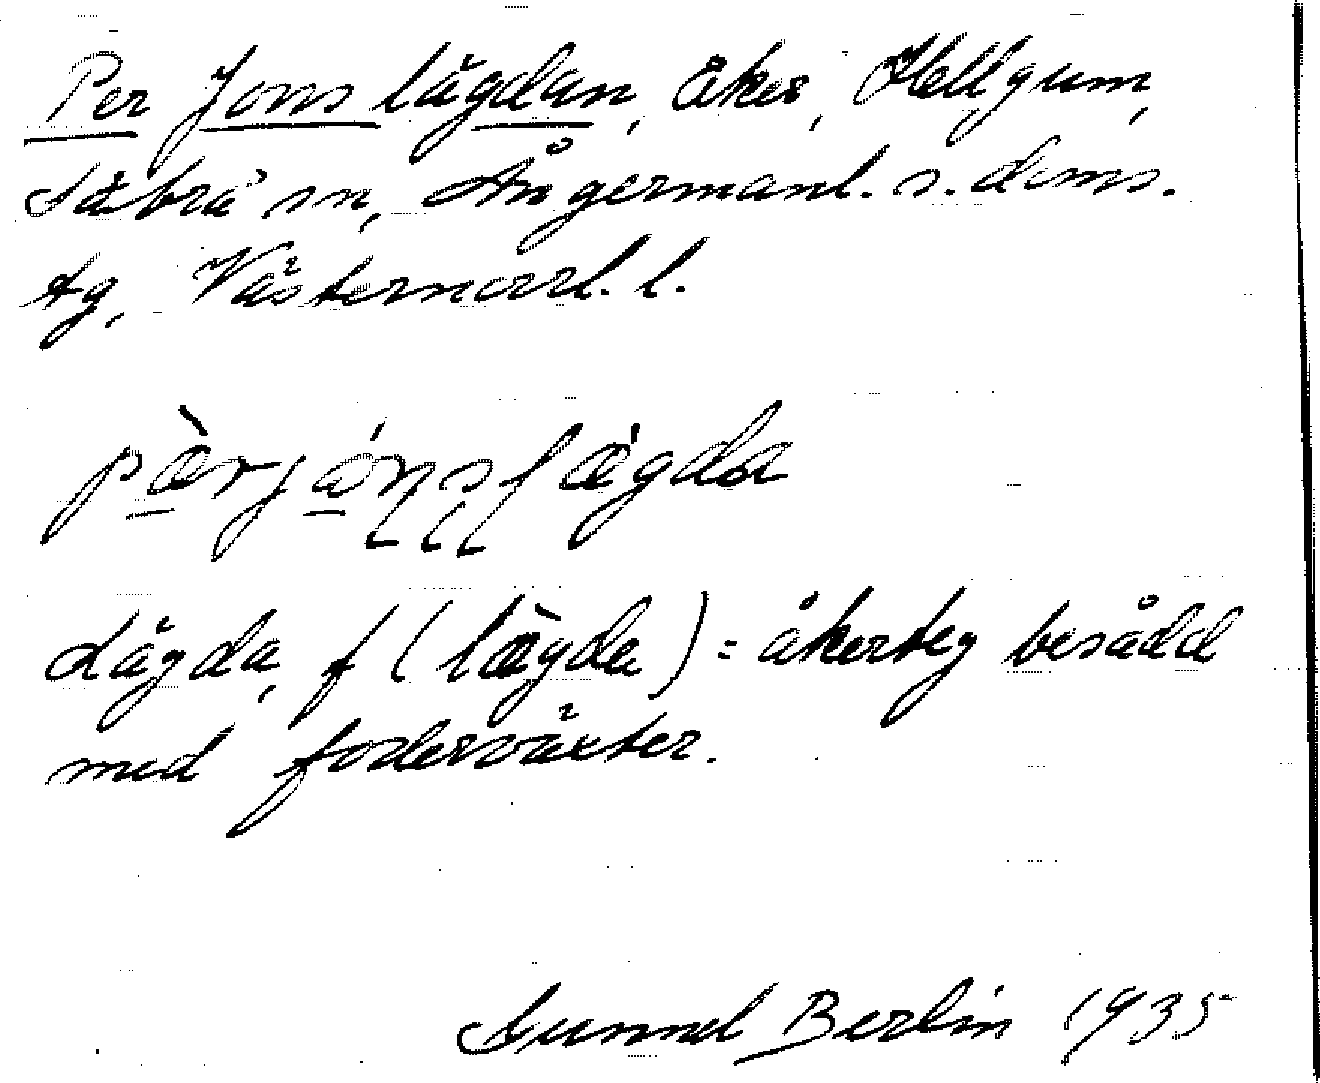 Per Jons lägdan, åker, Hellgum,
Säbrå sn, Ångermanl. s. doms.
tg, Västernorrl. l.
pèrjónslǽgda
Lägda, f (lægda) = åkerteg besådd
med foderväxter.
Gunnel Berlin 1935